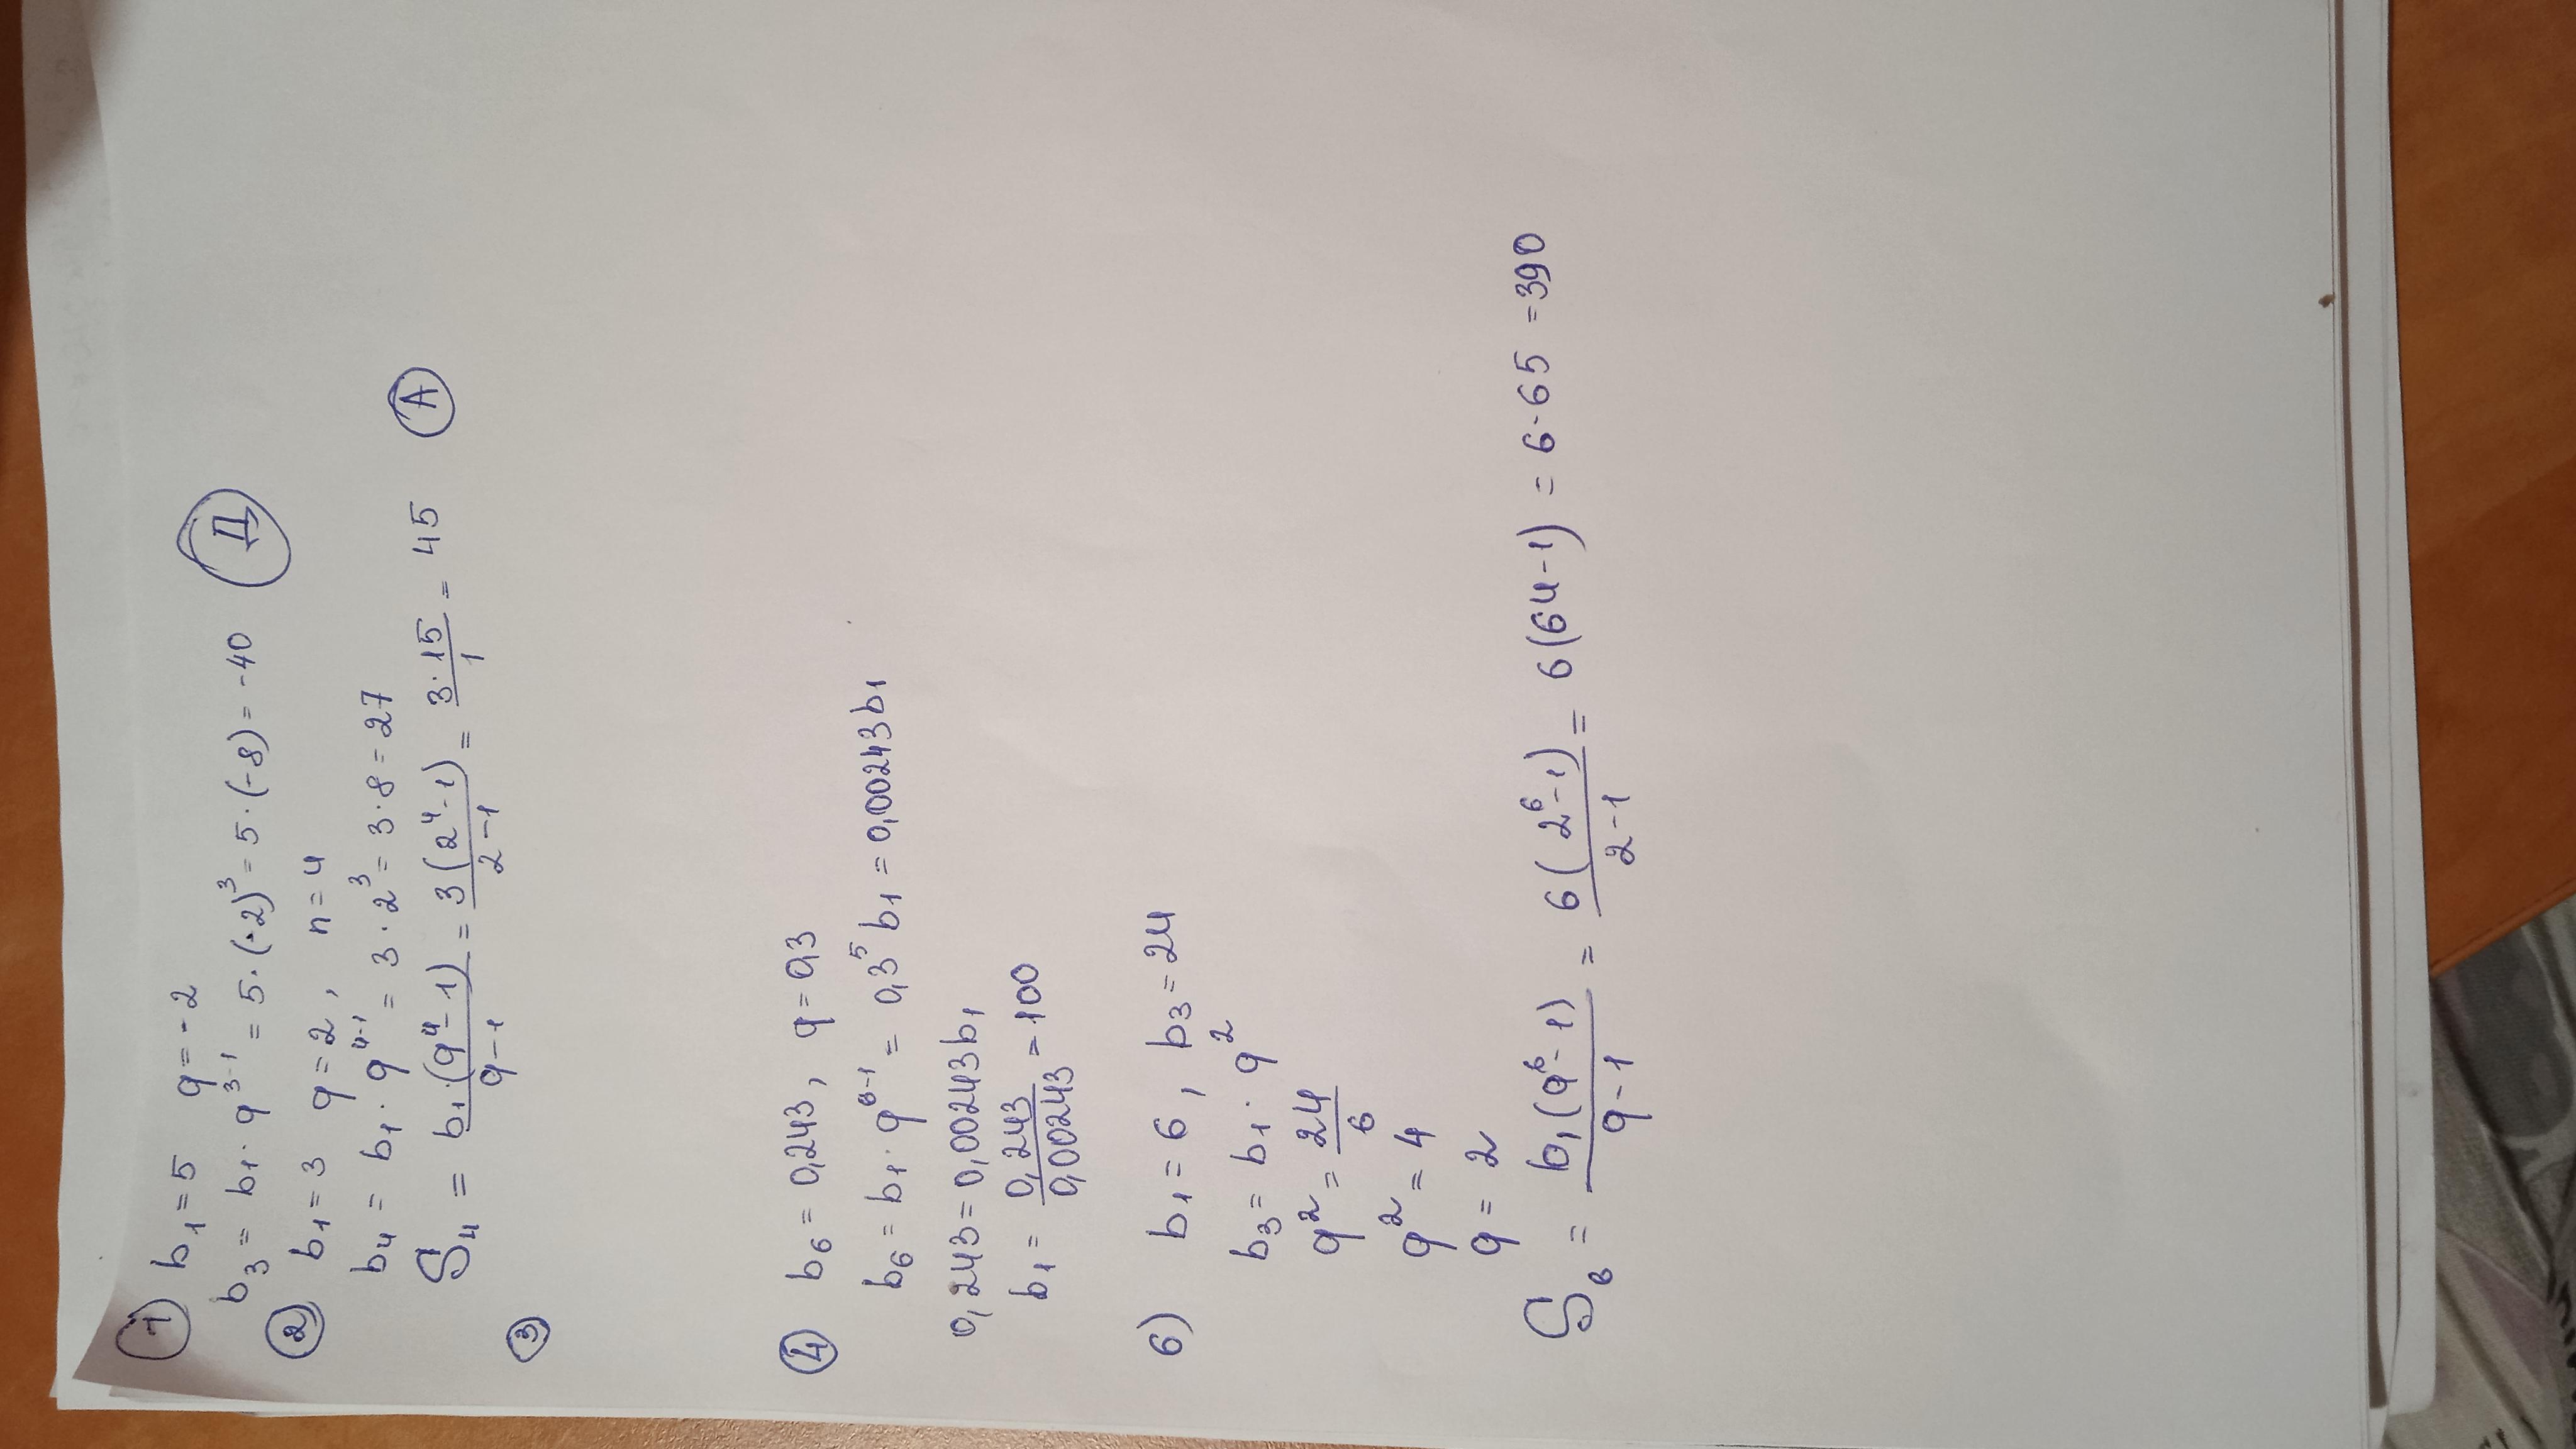 ① b₁ = 5 q = -2
b₃ = b₁ · q³⁻¹ = 5 · (-2)³ = 5 · (-8) = -40 Д
② b₁ = 3 q = 2, n = 4
b₄ = b₁ · q⁴⁻¹ = 3 · 2³ = 3 · 8 = 27
S₄ = b₁·(q⁴-1)/q-1 = 3(2⁴-1)/2-1 = 3·15/1 = 45 А
③
④ b₆ = 0,243, q = 0,3
b₆ = b₁ · q⁶⁻¹ = 0,3⁵ b₁ = 0,00243b₁
0,243 = 0,00243b₁
b₁ = 0,243/0,00243 = 100
6) b₁ = 6, b₃ = 24
b₃ = b₁ · q²
q² = 24/6
q² = 4
q = 2
S₆ = b₁(q⁶-1)/q-1 = 6(2⁶-1)/2-1 = 6(64-1) = 6·65 = 390